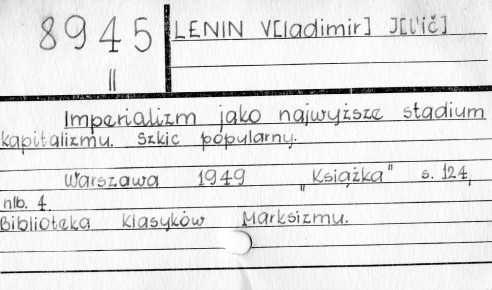 8945
II
LENIN V[ladimir] J[l'ič]
Imperializm jako najwyższe stadium
kapitalizmu. Szkic popularny.
Warszawa 1949 "Książka" s. 124,
nlb. 4.
Biblioteka Klasyków Marksizmu.